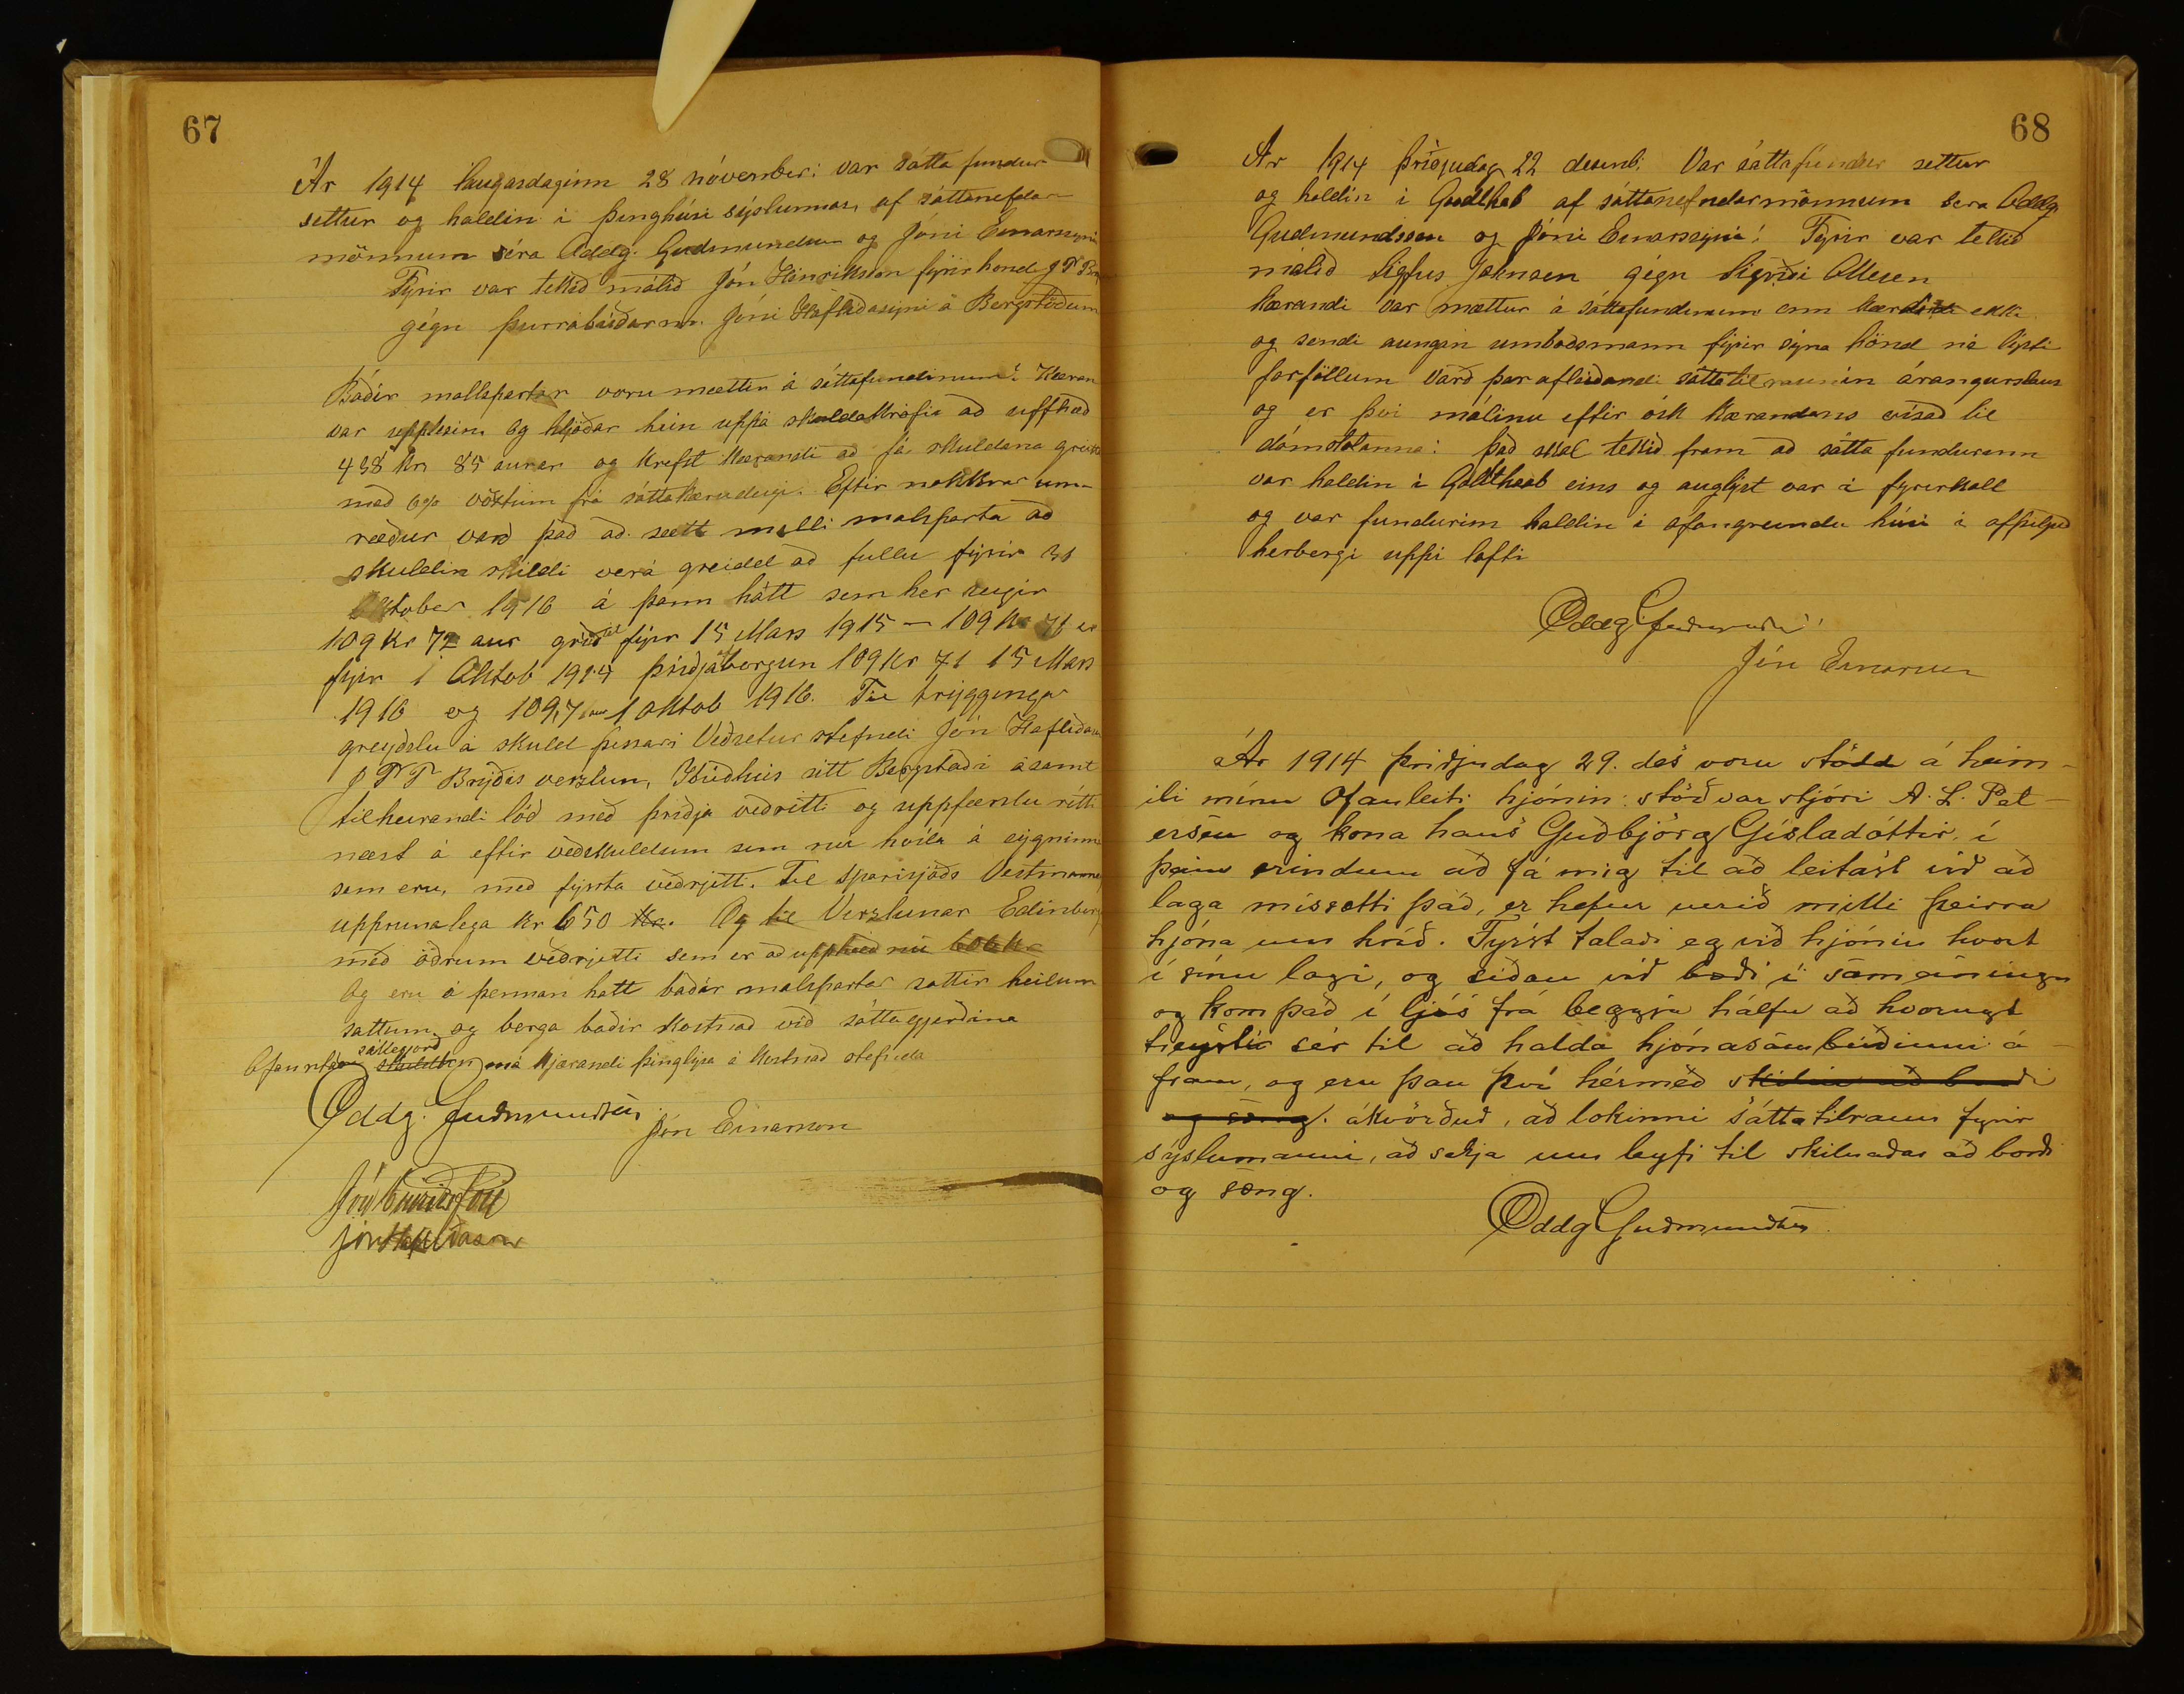 67
Ár 1914 laugardaginn 28 nóvember: var sátta fundur
settur og haldin i þinghúsi sýslunnar, af sáttanefdar
mönnum séra Oddg. Gudmundsen og Jóni Einarssyni
Fyrir var tekið málið Jón Hinriksson fyrir hond J P T Bry
gégn þurrabúðarm. Jóni Hafliðasyni á Bergstöðum
Báðir malspartar voru mættir á sáttafundinum: Kæran
var upplesin og hljóðar hún uppá skuldakröfu að upphæð
438 kr 85 aurar og krefst kærandi að fá skuldana greidd
með 6% vöxtum frá sáttakærudegi. Eftir nokkrar um-
ræður varð það að sætt milli malsparta að
skuldin skildi verá greidd að fullu fyrir 31
Oktober 1916 á þann hátt sem her seigir
109 kr 72 aur greiðist fyrir 15 Mars 1915 — 109 kr 71 au
fyrir 1 Oktob 1914 þriðjaborgun 109 kr 71 15 Mars
1916 og 109,71 aur 1 Oktob 1916. Til tryggingar
greyðslu á skuld þessari Veðsetur stefndi Jón Hafliðason
J P T Brýðis verzlun, Íbúðhús sitt Bergstaði ásamt
tilheirandi lóð með þriðja veðrétti og uppfærslu rétti
næst á eftir veðskuldum sem nú hvíla á eygninni
sem eru, með fyrsta veðrjetti. Til Sparisjóðs Vestmanna
upprunalega kr 650 kr. Og til Verzlunar Edinborg
með öðrum veðrjetti sem er að upphæð nú 606 kr
Og eru á þennan hatt báðir malspartar sattir heilum
sattum, og berga baðir kostnað við sáttagjerðina
sáttegjorð
Ofanritaða skuldbin má kjærandi þinglýsa á kostnað stefnda
Oddg. Guðmundsen
Jón Einarsson
Jón Hinriksson
Jón Hafliðason
68
Ár 1914 þriðjudag 22 desemb. Var sáttafundur settur
og haldin i Godthab af sáttanefndarmönnum sera Oddg
Gudmundssen og Jóni Einarssyni: Fyrir var tekið
malið Sigfus Johnsen gégn Sigríði Ottesen
kærandi var mættur á sáttafundinum enn kærdi ekki
og sendi aungan umboðsmann fyrir sýna hönd né lýsti
forföllum varð þar afleiðandi sáttatilraunin árangurslaus
og er því málinu eftir ósk kærandans vísað til
dómstolanna: það skal tekið fram að sátta fundurinn
var haldin i Goldthaab eins og auglýst var á fyrirkall
og var fundurinn haldin i ofangreindu húsi i afþiljuð
herbergi uppi lofti
Oddg Guðmundsen
Jón Einarsson
Ár 1914 þriðjudag 29. des voru stödd á heim-
ili mínu Ofanleiti hjónin: stöðvarstjóri A. L. Pet-
ersen og kona hans Guðbjörg Gísladóttir í
þeim erindum að fá mig til að leitast við að
laga missætti það, er hefur verið milli þeirra
hjóna um hríð. Fyrst talaði eg við hjónin hvort
í sínu lagi, og siðan við bæði í sameiningu
og kom það í ljós frá beggja hálfu að hvorugt
treystir sér til að halda hjónasambúðinni á-
fram, og eru þau því hérmeð skilin að borði
og sæng. ákvörðuð, að lokinni sáttatilraun fyrir
sýslumanni, að sækja um leyfi til skilnaðar að borði
og sæng.
Oddg Guðmundsen